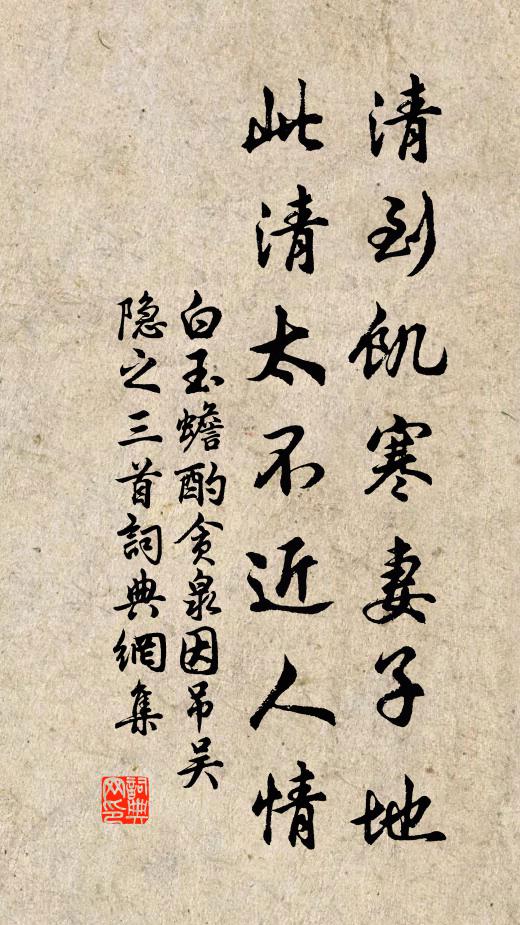 清到飢寒妻子地
此清太不近人情
白玉蟾酌貪泉因吊吴
隐之三首詞典網集
詞典网印